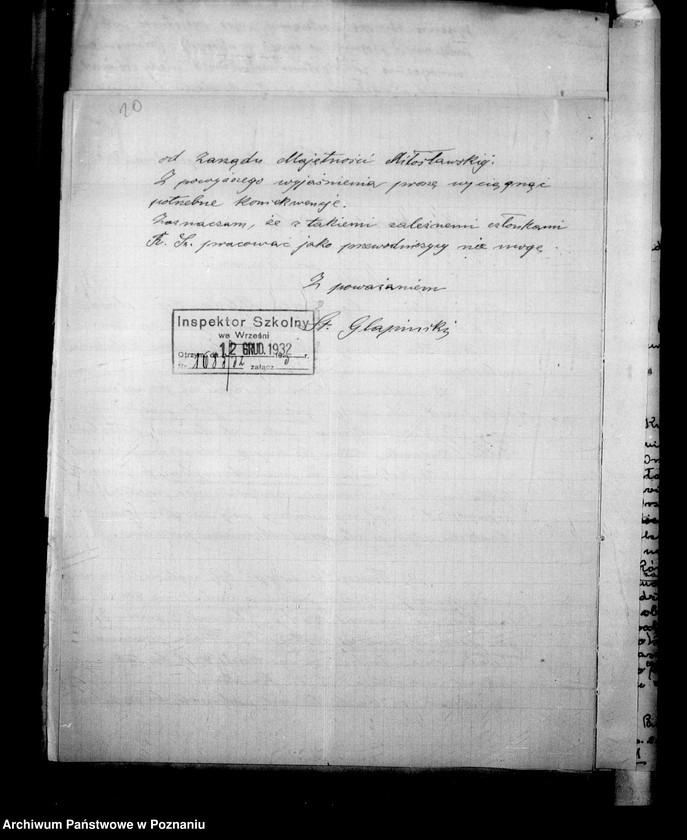 20
od Zarządu Majętności Miłosławskiej.
Z powyższego wyjaśnienia proszę wyciągnąć
potrzebne konsekwencje.
Zaznaczam, że z takiemi zależnemi członkami
R. Sz. pracować jako przewodniczący nie mogę.
Z poważaniem
St. Glapiński
Inspektor Szkolny
we Wrześni
Otrzym. dn. 12 GRUD. 1932 r.
Nr. załącz.
Archiwum Państwowe w Poznaniu